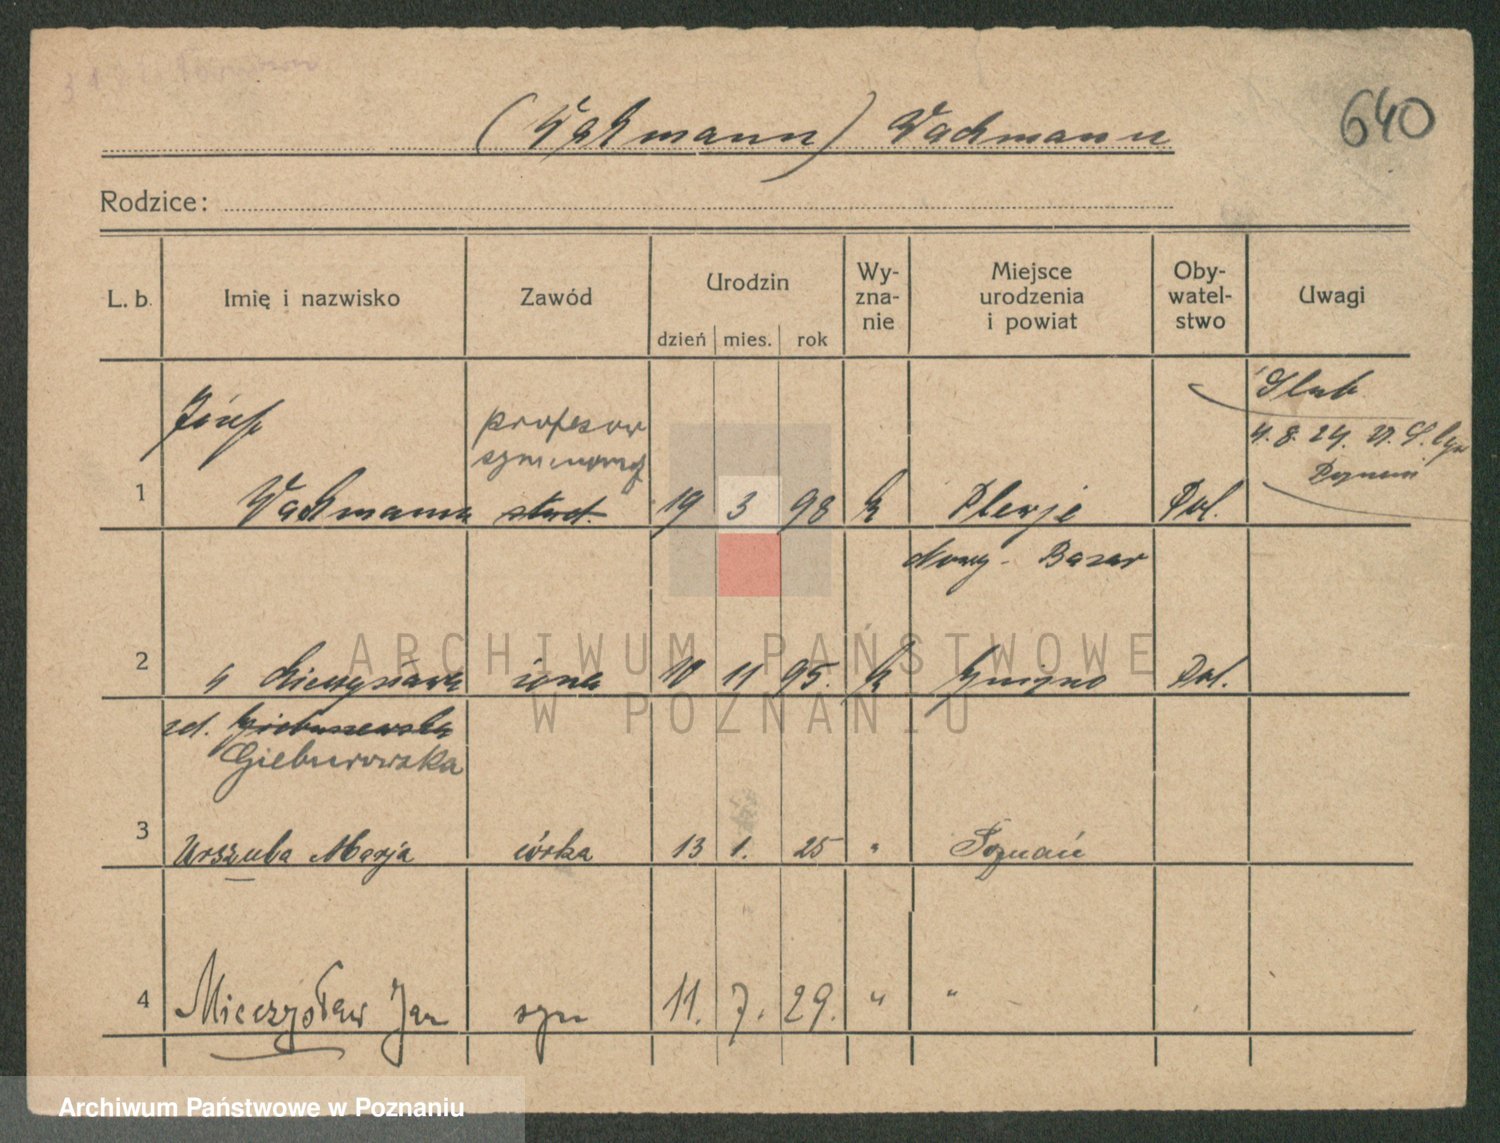 (Wahmann) Wachmann
640
Rodzice:
L. b. Imię i nazwisko Zawód Urodzin dzień mies. rok Wy-zna-nie Miejsce urodzenia i powiat Oby-watel-stwo Uwagi
Józef profesor Ślub
4. 8. 24.
Poznań
1 Wachmann stud. 19 3 98 k Plewje Pol.
Nowy-Bazar
2 " Mieczysława żona 10 11 95. k Gniezno Pol.
zd. Giebuszewska
Gieburowska
3 Urszula Marja córka 13 1. 25 " Poznań
4 Mieczysław Jan syn 11. 7. 29. " "
ARCHIWUM PAŃSTWOWE
W POZNANIU
Archiwum Państwowe w Poznaniu